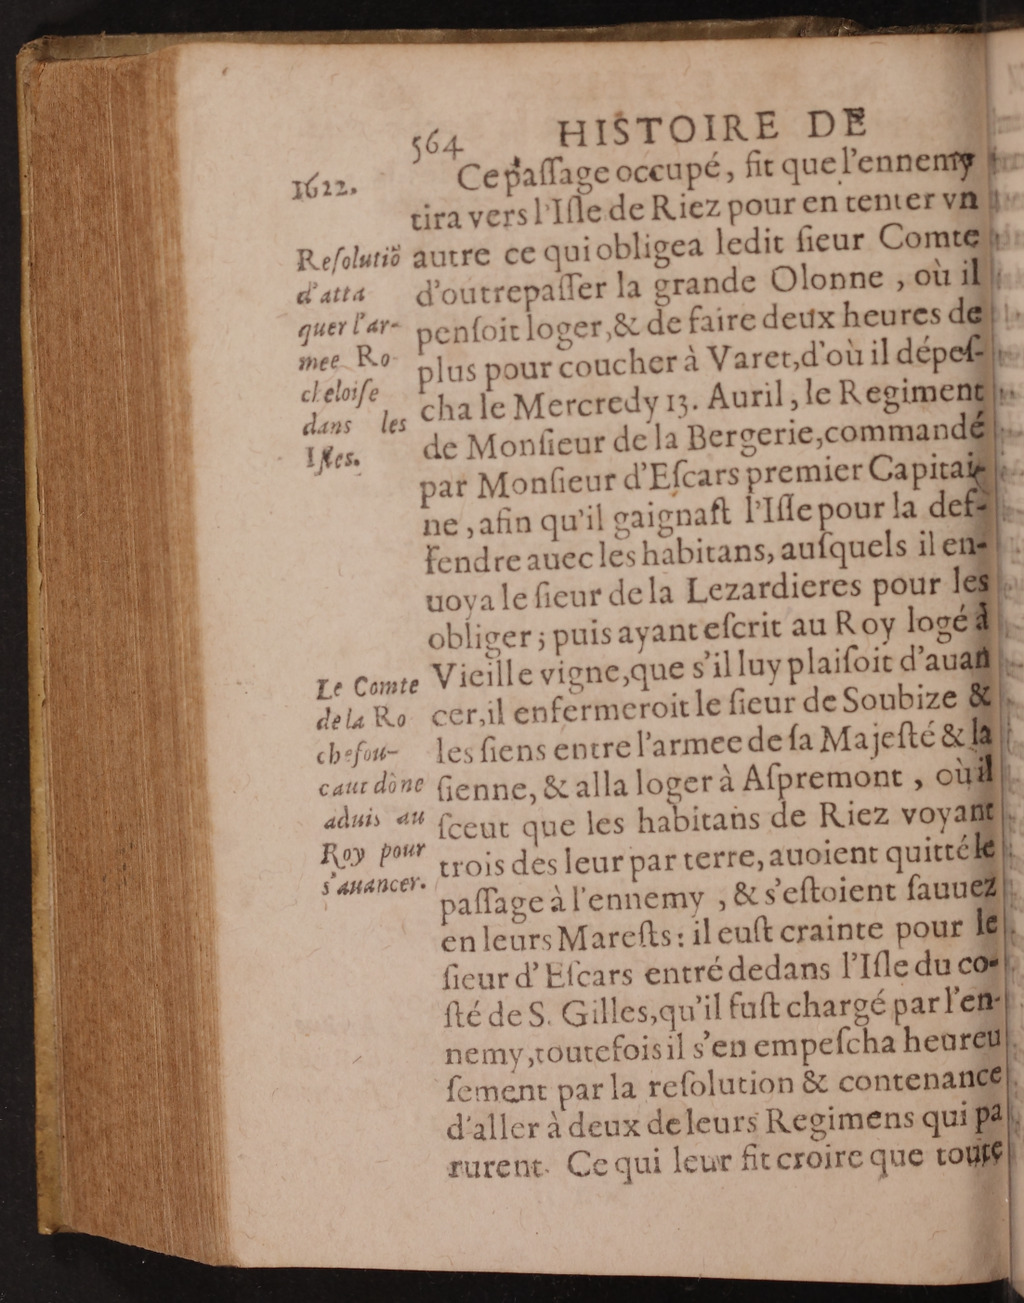 564 HISTOIRE DE
1622.
Ce paſſage occupé, fit que l'ennemy
tira vers l'Iſle de Riez pour en tenter vn
autre ce qui obligea ledit ſieur Comte
d'outrepaſſer la grande Olonne , où il
penſoit loger, & de faire deux heures de
plus pour coucher à Varet, d'où il dépeſ-
cha le Mercredy 13. Auril, le Regiment
de Monſieur de la Bergerie, commandé
par Monſieur d'Eſcars premier Capitai-
ne, afin qu'il gaignaſt l'Iſle pour la def-
fendre auec les habitans, auſquels il en-
uoya le ſieur de la Lezardieres pour les
obliger; puis ayant eſcrit au Roy logé à
Vieille vigne, que s'il luy plaiſoit d'auan
cer, il enfermeroit le ſieur de Soubize &
les ſiens entre l'armee de ſa Majeſté & la
ſienne, & alla loger à Aſpremont , où il
ſceut que les habitans de Riez voyant
trois des leur par terre, auoient quitté le
paſſage à l'ennemy , & s'eſtoient ſauuez
en leurs Mareſts: il euſt crainte pour le
ſieur d'Eſcars entré dedans l'Iſle du co-
ſté de S. Gilles, qu'il fuſt chargé par l'en-
nemy, toutefois il s'en empeſcha heureu
ſement par la reſolution & contenance
d'aller à deux de leurs Regimens qui pa
rurent. Ce qui leur fit croire que toute
Reſolutiō
d'atta
quer l'ar-
mee Ro
cheloiſe
dans les
Iſles.
Le Comte
de la Ro
chefou-
caut dōne
aduis au
Roy pour
s'auancer.